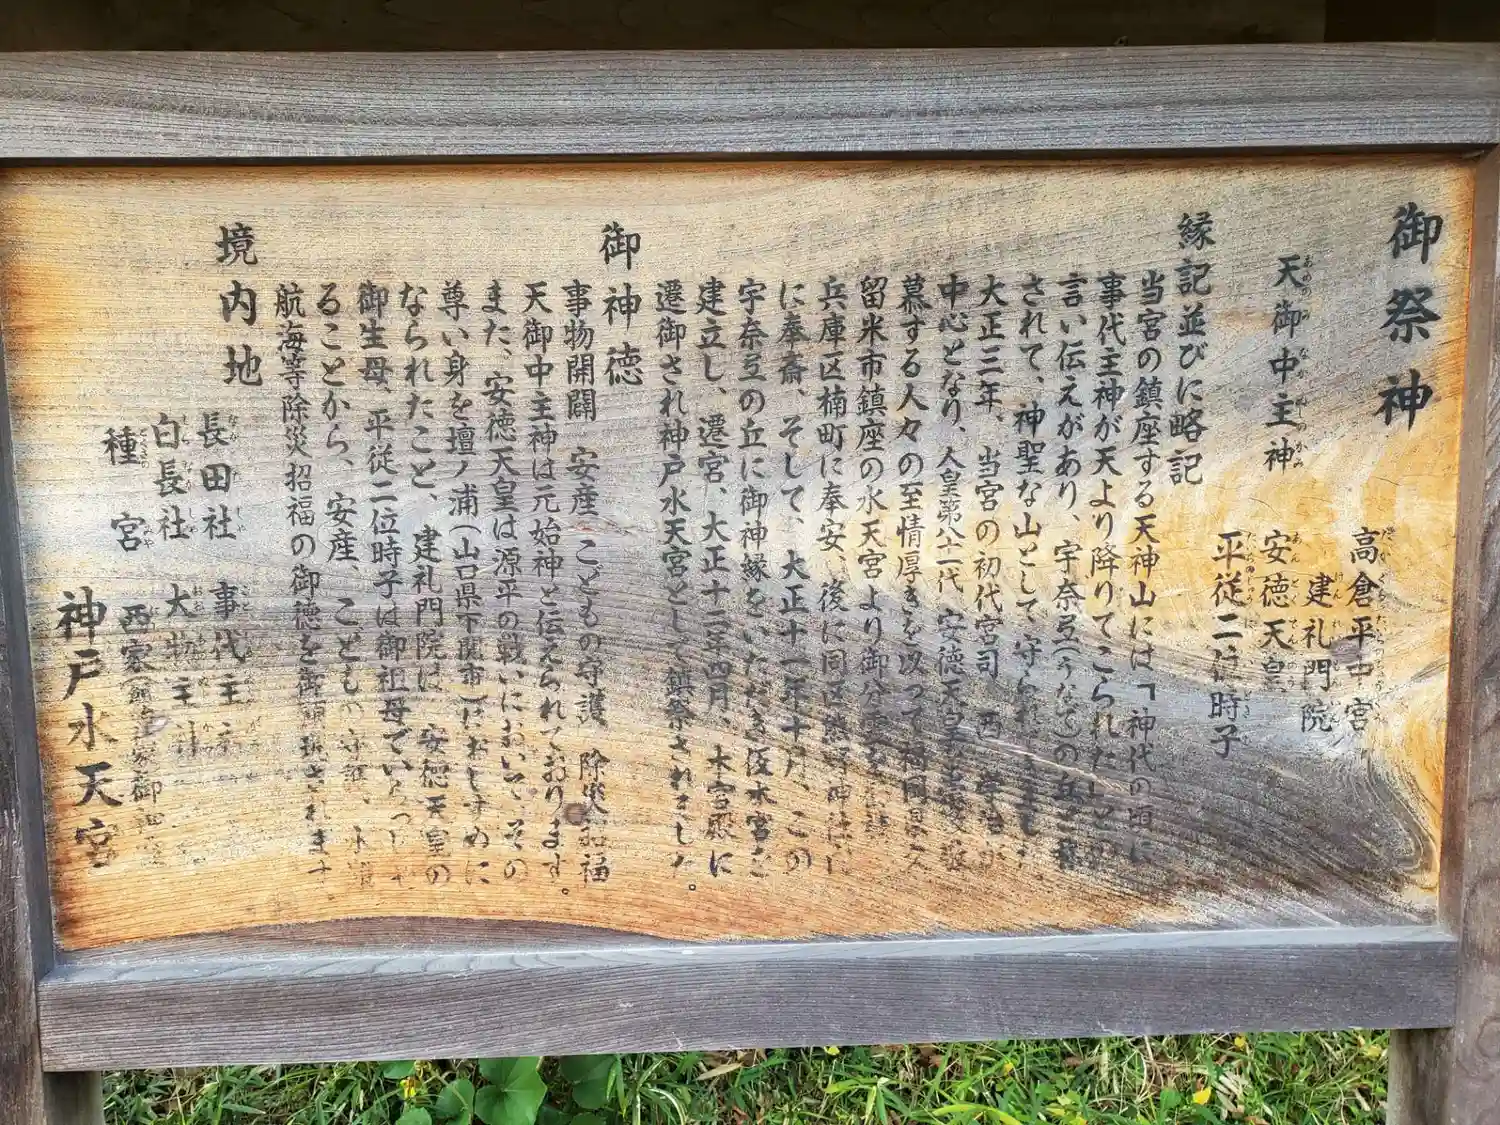 御祭神
高倉平中宮
建礼門院
天御中主神
安徳天皇
平従二位時子
縁記並びに略記
当宮の鎮座する天神山には「神代の頃に
事代主神が天より降りてこられた」との
言い伝えがあり、宇奈五(うなで)の丘と称
されて、神聖な山として守られ
大正三年、当宮の初代宮司 西
中心となり、人皇第八十一代 安徳天皇
慕する人々の至情厚きを以って福岡県久
留米市鎮座の水天宮より御分霊を
兵庫区楠町に奉安、後に同区熊野神社に
に奉斎、そして、大正十一年十月、この
宇奈五の丘に御神縁をいただき仮本宮ご
建立し、遷宮、大正十二年四月、本宮殿に
遷御され神戸水天宮として鎮祭されました。
御神徳
事物開闢 安産 こどもの守護 除災招福
天御中主神は元始神と伝えられております。
また、安徳天皇は源平の戦いにおいて、その
尊い身を壇ノ浦(山口県下関市)におしずめに
なられたこと、建礼門院は、安徳天皇の
御生母、平従二位時子は御祖母でいらっしゃ
ることから、安産、こどもの守護、水難
航海等除災招福の御徳を御顕現されます
境内地
長田社 事代主神
白長社 大物主神
種宮 西家
神戸水天宮